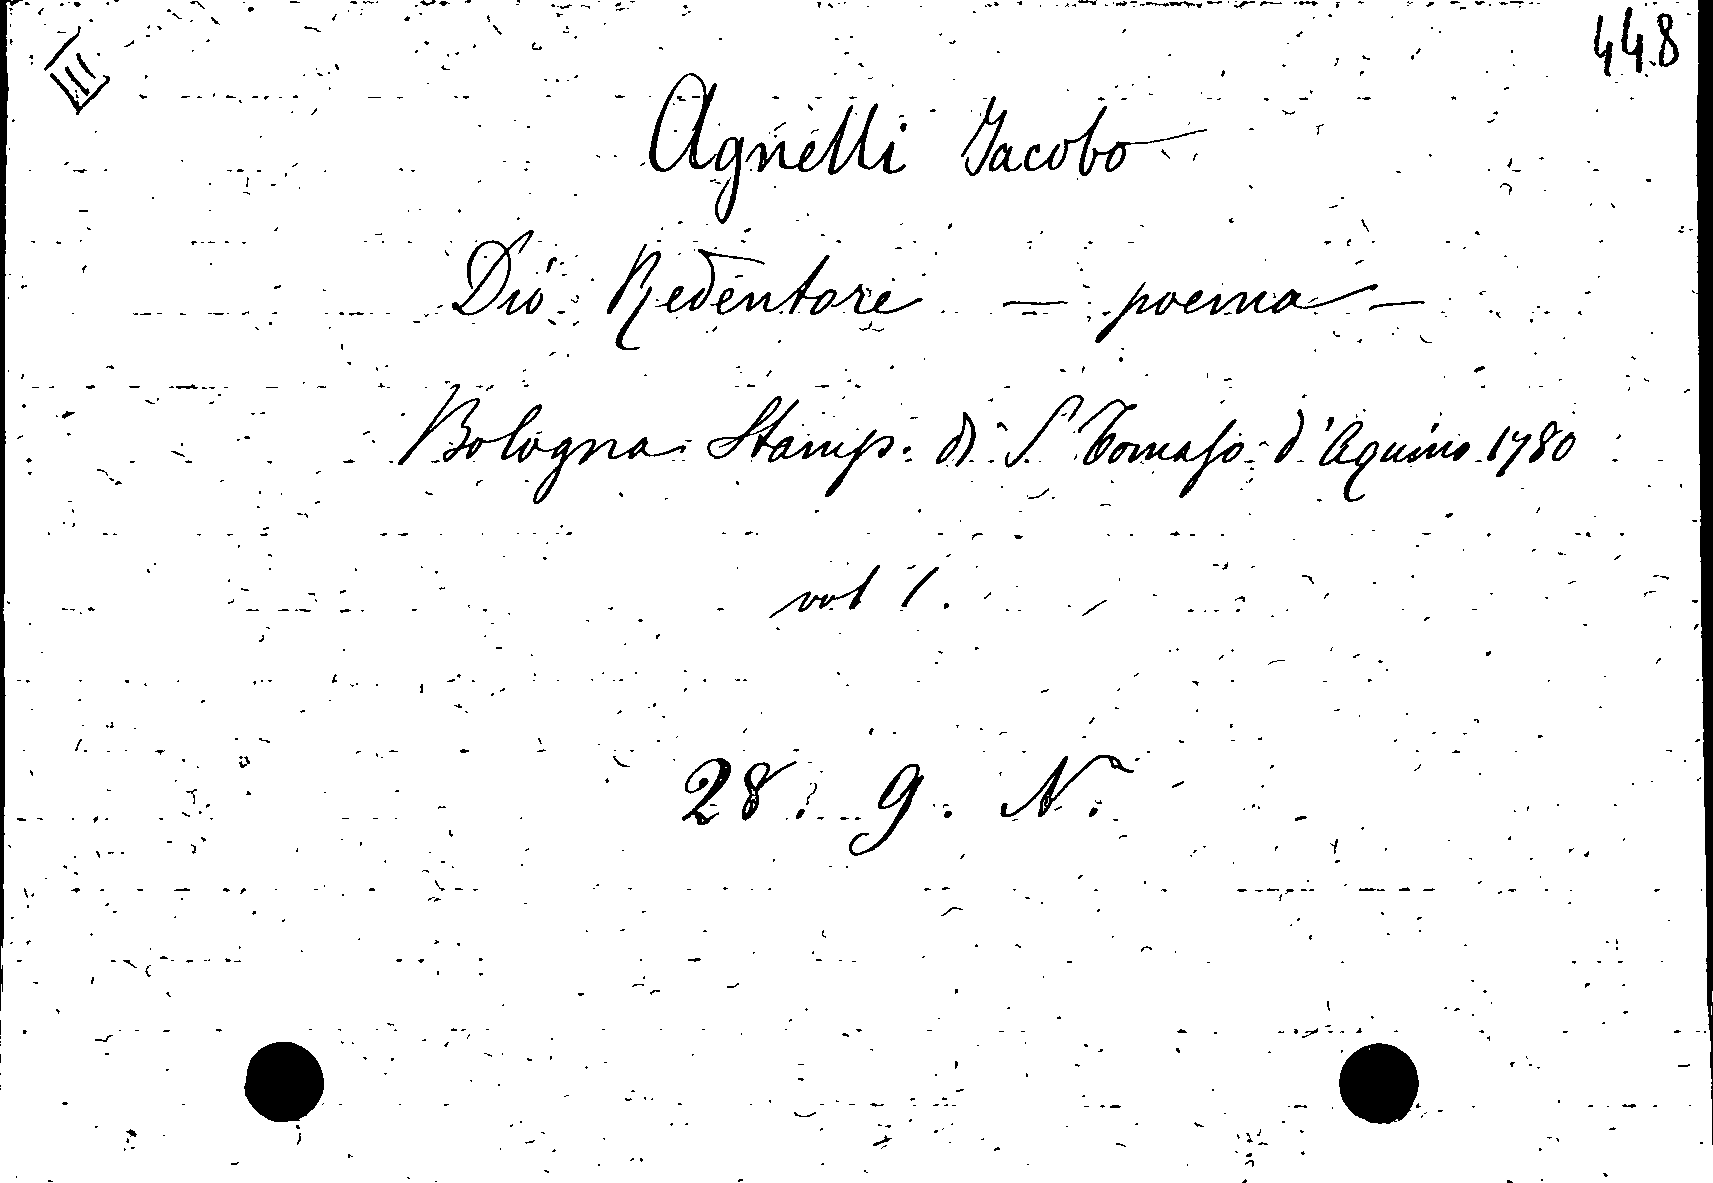 III
448
Agnelli Jacobo
Dio Redentore — poema —
Bologna Stamp. di S. Tomaso d'Aquino 1780
vol 1.
28. 9. N.